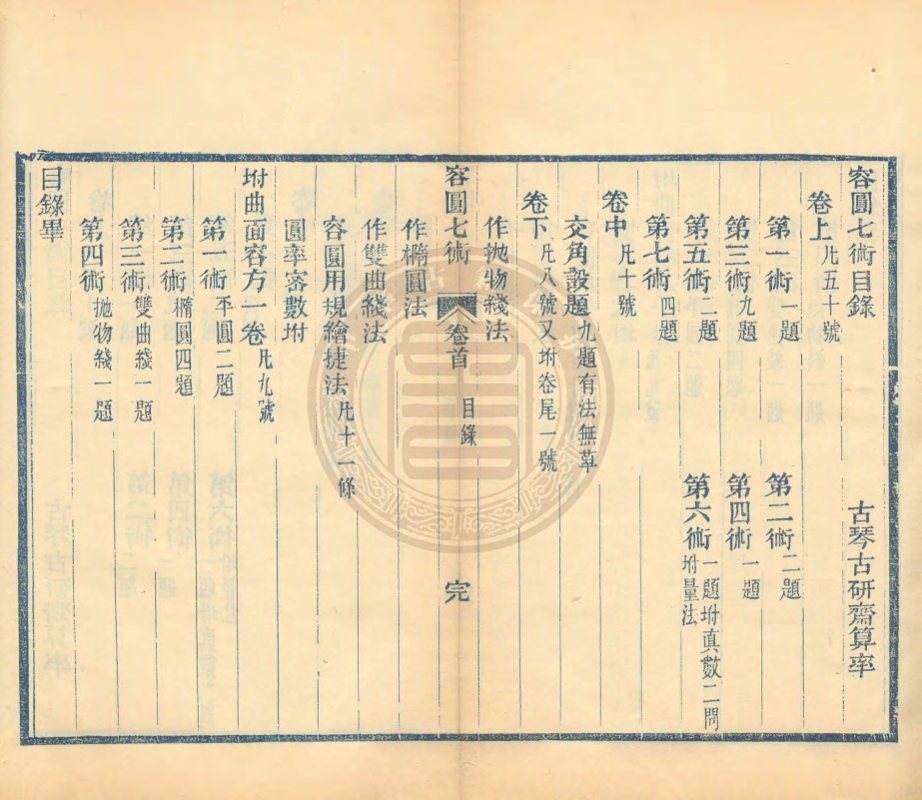 容圓七術目錄　古琴古研齋算率
卷上凡五十號
第一術一題　第二術二題
第三術九題　第四術一題
第五術二題　第六術一題坿真數二問坿量法
第七術四題
卷中凡十號
交角設題九題有法無草
卷下凡八號又坿卷尾一號
作拋物綫法
容圓七術　卷首　目錄　完
作橢圓法
作雙曲綫法
容圓用規繪捷法凡十一條
圓率密數坿
坿曲面容方一卷凡九號
第一術平圓二題
第二術橢圓四題
第三術雙曲綫一題
第四術拋物綫一題
目錄畢